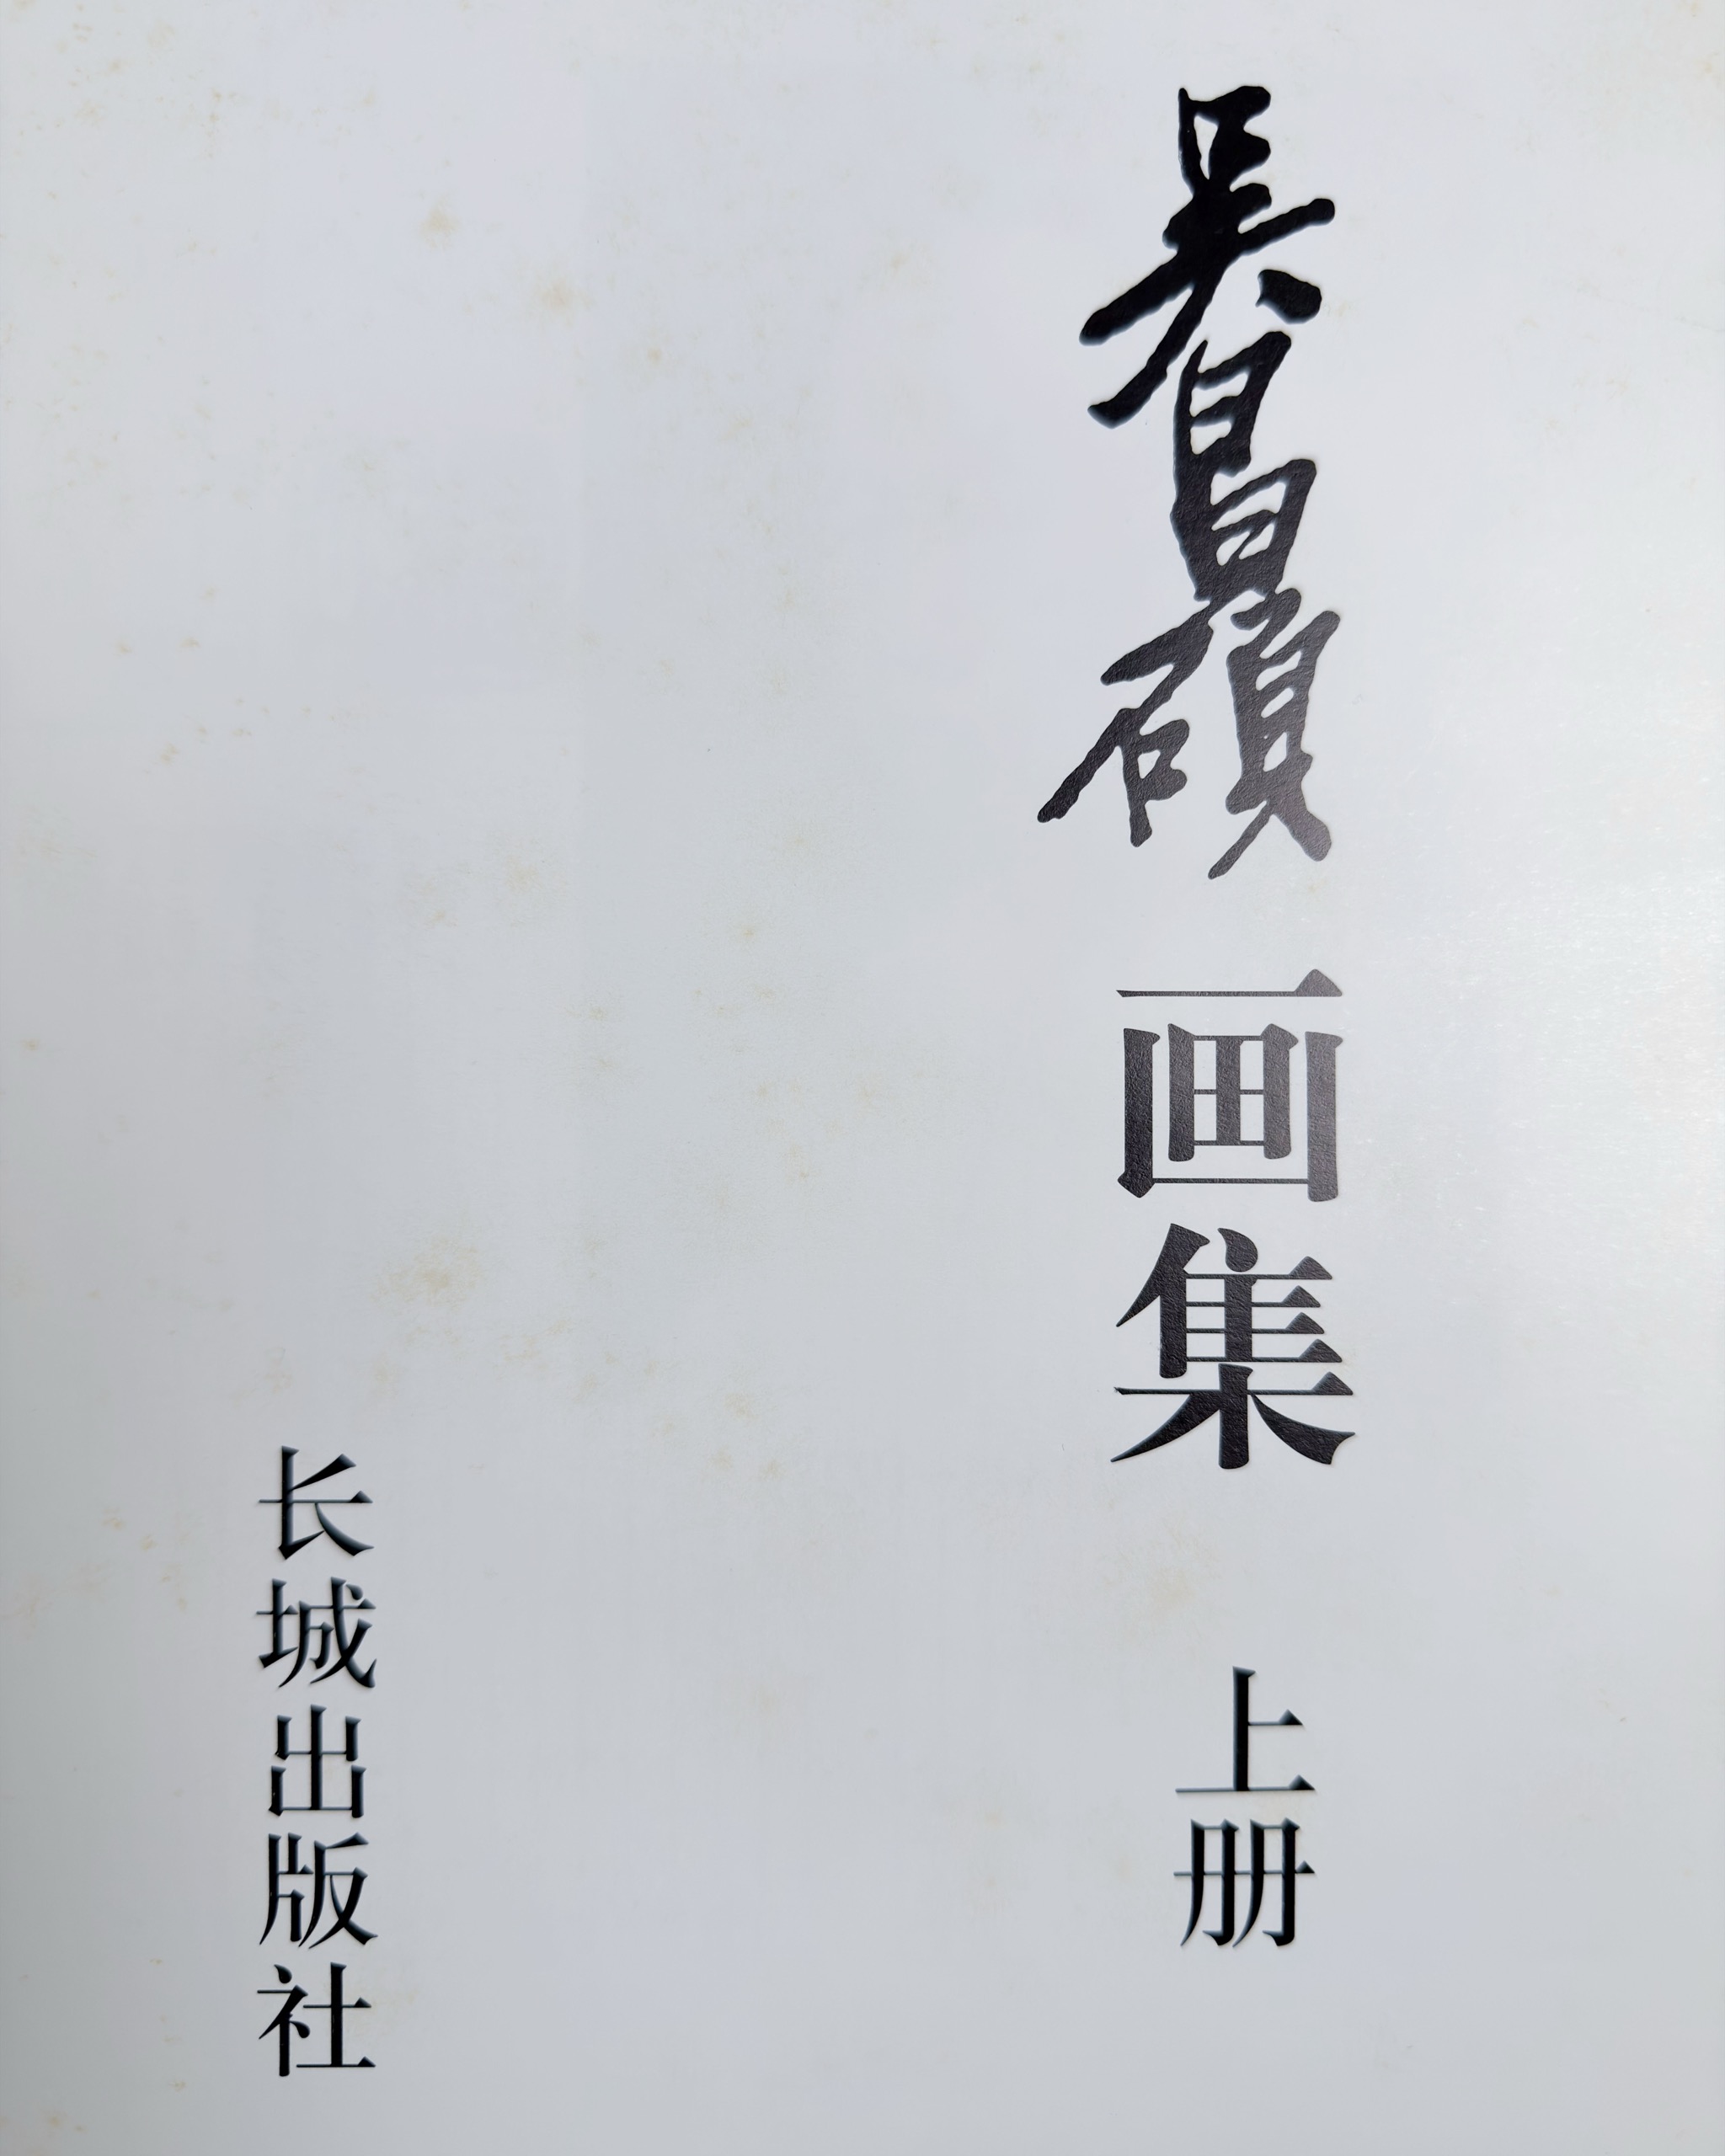 吴昌碩画集 上册
长城出版社